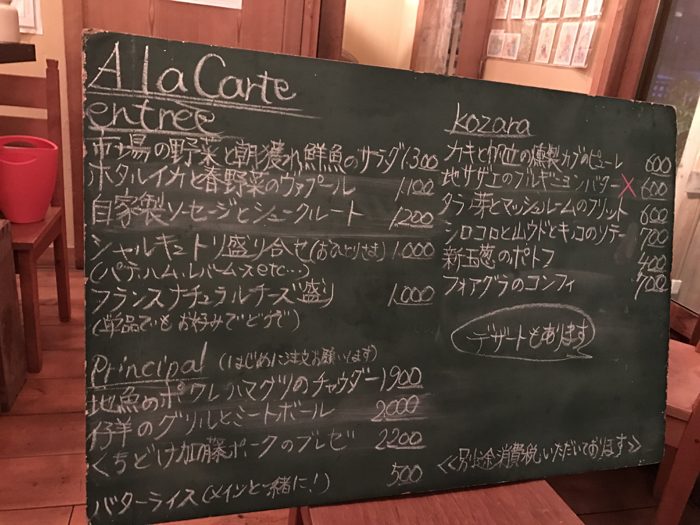 A la Carte
entrée
市場の野菜と朝獲れ鮮魚のサラダ 1300
ホタルイカと春野菜のヴァプール 1100
自家製ソーセージとシュークルート 1200
シャルキュトリ盛り合せ(おひとりさま) 1.000
(パテ.ハム.レバームースetc…)
フランスナチュラルチーズ盛り 1.000
(単品でもお好みでどうぞ)
Principal (はじめに注文お願いします)
地魚のポワレ ハマグリのチャウダー 1900
仔羊のグリルとミートボール 2000
くちどけ加藤ポークのブレゼ 2200
バターライス(メインと一緒に!) 500
kozara
カキと帆立の燻製 カブのピューレ 600
地サザエのブルギニョンバター × 600
タラの芽とマッシュルームのフリット 600
シロコロと山ウドとキノコのソテー 700
新玉葱のポトフ 400
フォアグラのコンフィ 700
デザートもあります
<<別途消費税いただいております>>